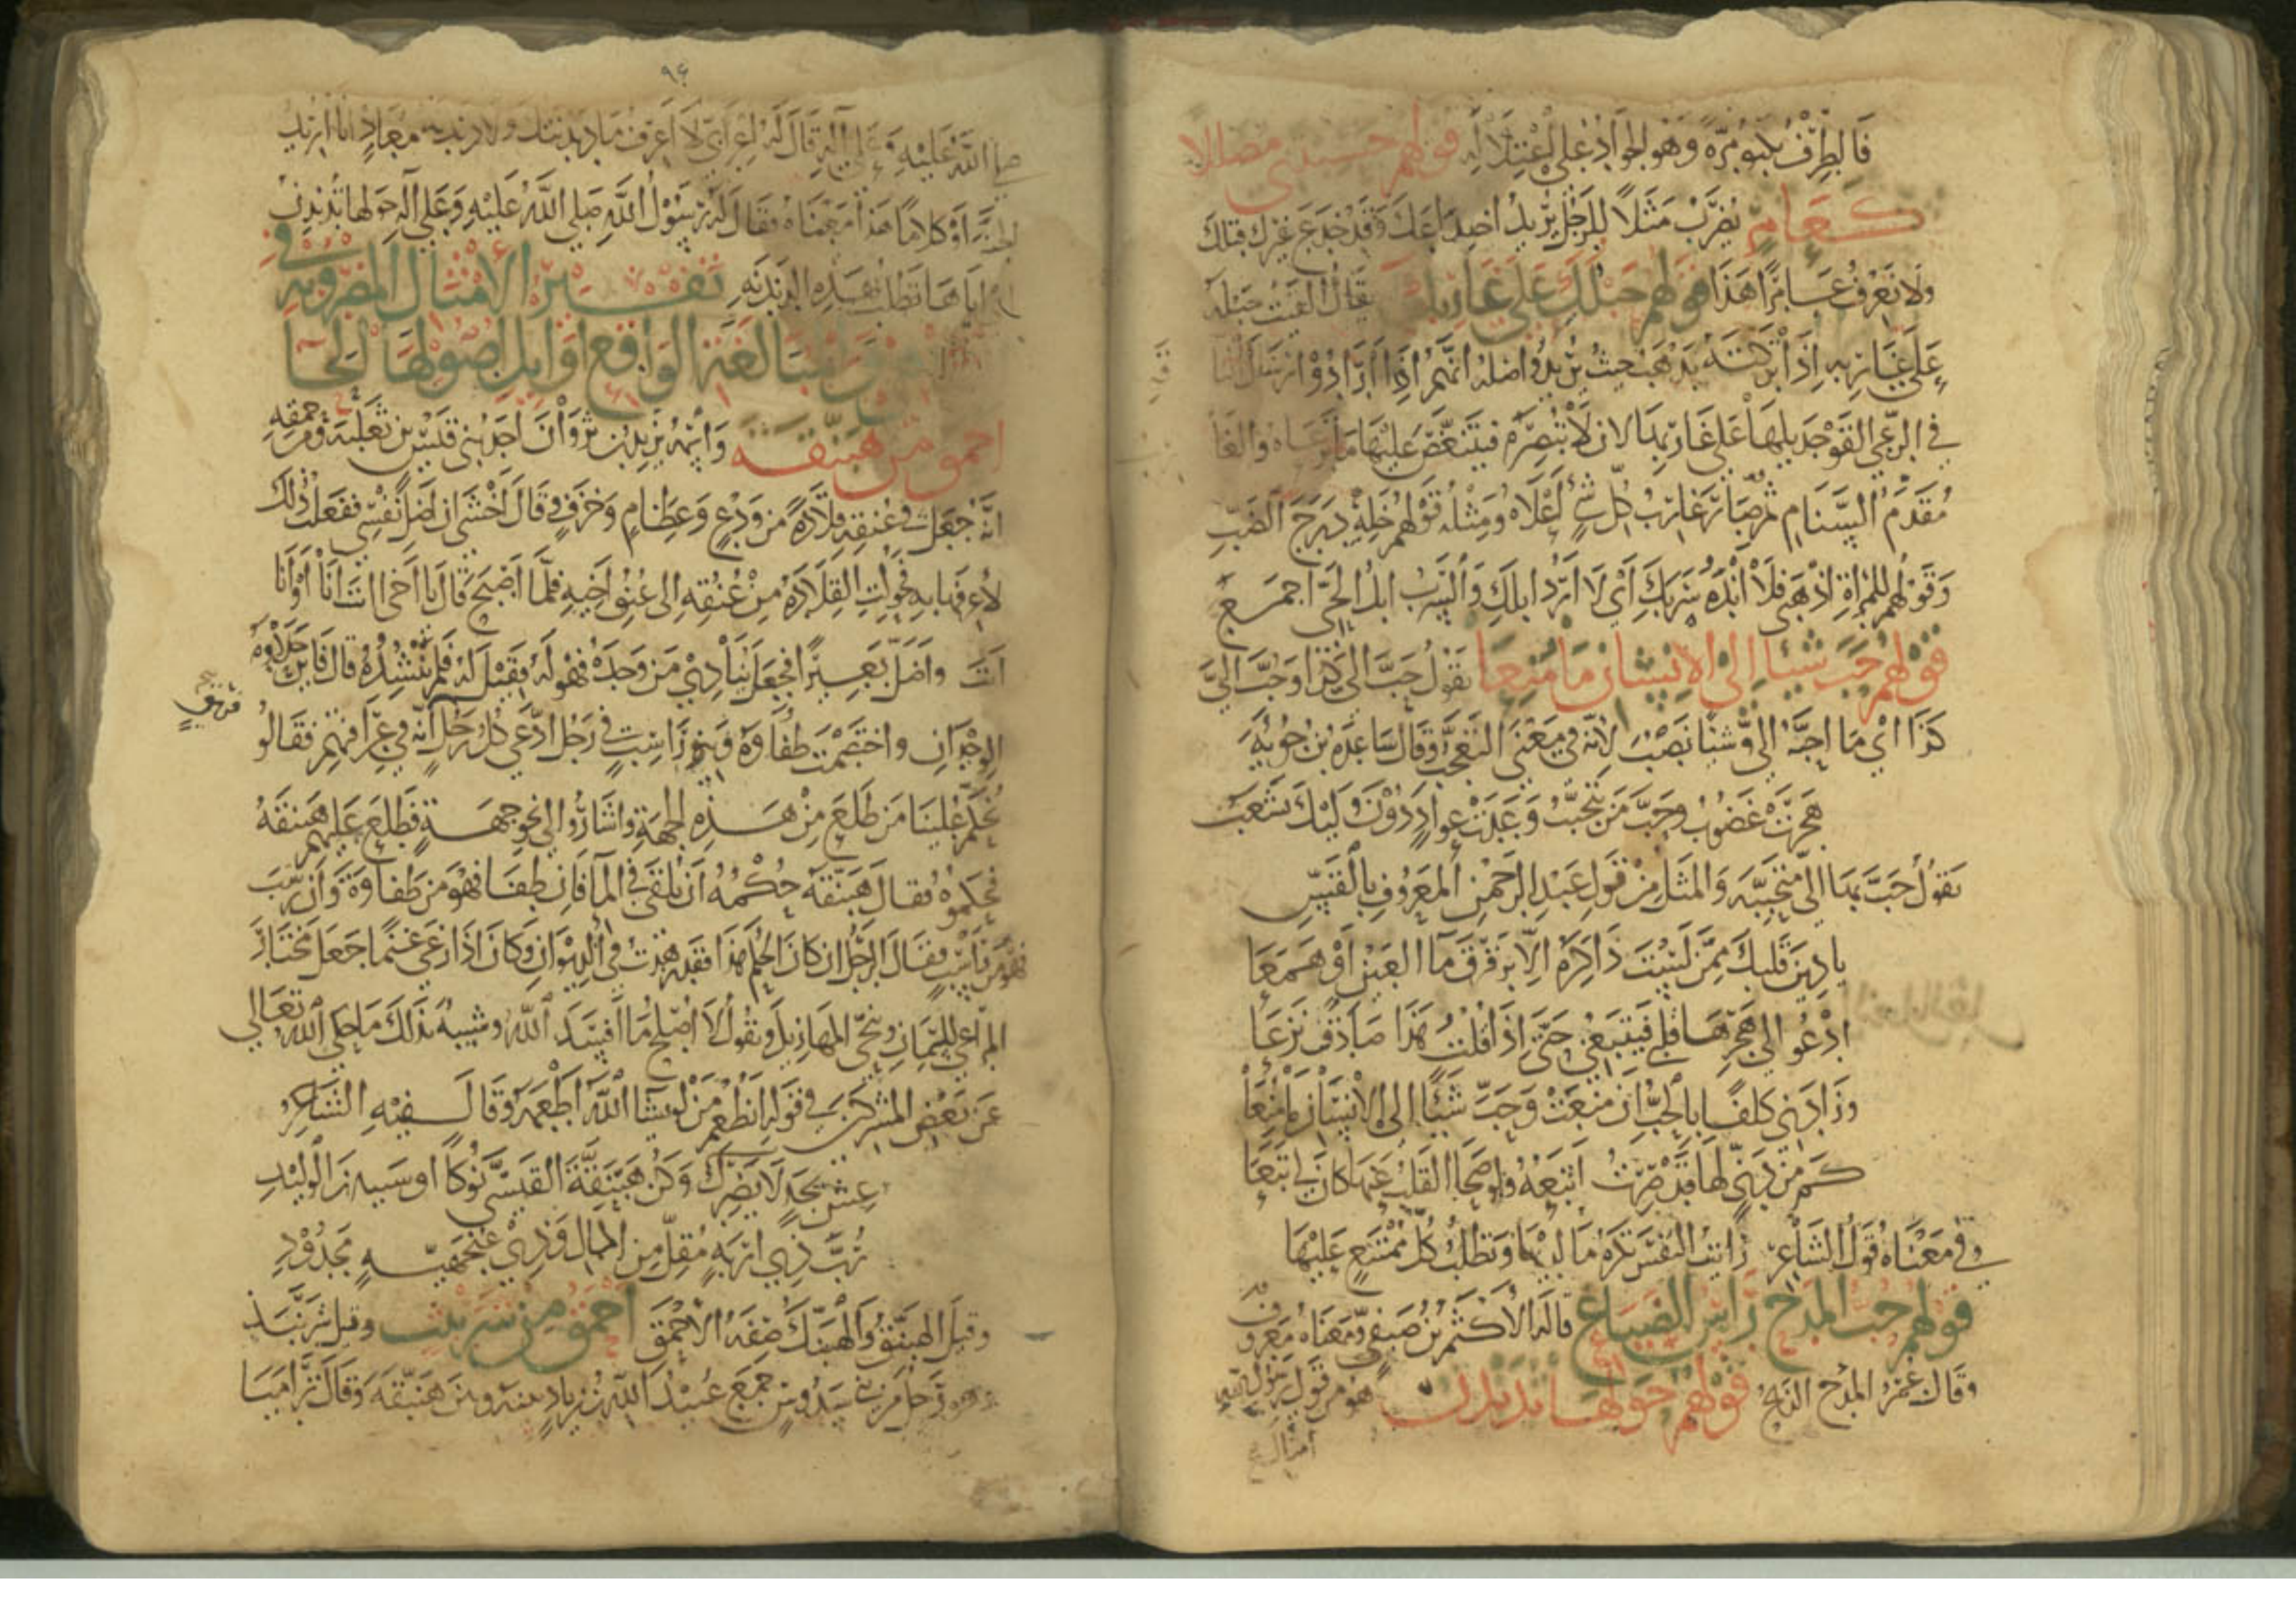 فالطرف يكبو مرة وهو الجواد على اعتلاله قولهم حسبتني مضللا
كعامر يضرب مثلا للرجل يريد اخداعك وقد خدع غيرك قبلك
ولا نعرف عامرا هذا قولهم حبلك على غاربك يقال القيت حبله
على غاربه اذا تركته يذهب حيث يريد واصله انهم اذا ارادوا ارسال
في الرعي القوا جديلها على غاربها لان لا تبصره فيتنغص عليها ما ترعاه والغا
مقدم السنام ثم صار غارب كل شئ اعلاه ومثله قولهم خله درج الضب
وقولهم للمراة اذهبي فلا انده سربك اي لا ارد ابلك والسرب ابل الحي اجمع
قولهم حب شيئا الى الانسان ما منعا تقول حب الي كذا وحب الي
كذا اي ما احبه الي وشيئا نصب لانه في معنى التعجب وقال ساعدة بن جوية
هجرت غضوب وحب من يتحبب وعدت عواد دون وليك تشعب
تقول حب بها الي متحببه والمثل من قول عبد الرحمن المعروف بالقس
يا دين قلبك ممن لست ذاكره الا ترقرق ما العين او همعا
ادعو الى هجرها قلبي فيتبعني حتى اذا قلت هذا صادق نزعا
وزادني كلفا بالحب ان منعت وحب شيئا الى الانسان ما منعا
كم من دني لها قد صرت اتبعه ولو صحا القلب عنها كان لي تبعا
وفي معناه قول الشاعر رايت النفس تكره ما لديها وتطلب كل ممتنع عليها
قولهم حب المدح راس الضياع قاله الاكثم بن صيفي ومعناه معروف
وقال عمر المدح الذبح قولهم حولها ندندن هو من قول رسول الله
امثال
٩٤
صلى الله عليه وعلى آله قال له اعرابي لا اعرف ما دندنتك ولا دندنة معاذ انا اريد
الجنة او كلاما هذا معناه فقال له رسول الله صلى الله عليه وعلى آله حولها ندندن
اياها نطلب بهذه الدندنة تفسير الامثال المضروبة في
المبالغة الواقع اوايل اصولها الحا
احمق من هبنقة واسمه يزيد بن ثروان احد بني قيس بن ثعلبة ومن حمقه
انه جعل في عنقه قلادة من ودع وعظام وخزف وقال اخشى ان اضل نفسي ففعلت ذلك
لاعرفها به فحولت القلادة من عنقه الى عنق اخيه فلما اصبح قال يا اخي انت انا او انا
انت واضل بعيرا فجعل ينادي من وجده فهو له فقيل له فلم تنشده قال فاين حلاوة
الوجدان واختصمت طفاوة وبنو راسب في رجل ادعى كل رجل انه في عرافتهم فقالوا
نحكم علينا من طلع من هذه الجهة واشاروا الى نحو جهة فطلع عليهم هبنقة
فحكموه فقال هبنقة حكمه ان يلقى في الما فان طفا فهو من طفاوة وان رسب
فهو من راسب فقال الرجل ان كان الحكم هذا فقد زهدت في الديوان وكان اذا رعى غنما جعل مختار
المراعي للسمان وينحي المهازيل ويقول لا اصلح ما افسد الله وشبيه بذلك ما حكى الله تعالى
عن بعض المشركين في قوله انطعم من لو يشا الله اطعمه وقال فيه الشاعر
عش بجد لا يضرك وكن هبنقة القيسي نوكا او شيبة بن الوليد
رب ذي اربة مقل من المال وذي عنجهية مجدود
وقيل الهبنق والهبنك صفة الاحمق احمق من شرنبث وقيل شرنبذ
وهو رجل من بني سدوس جمع عبيد الله بن زياد بينه وبين هبنقة وقال تراميا